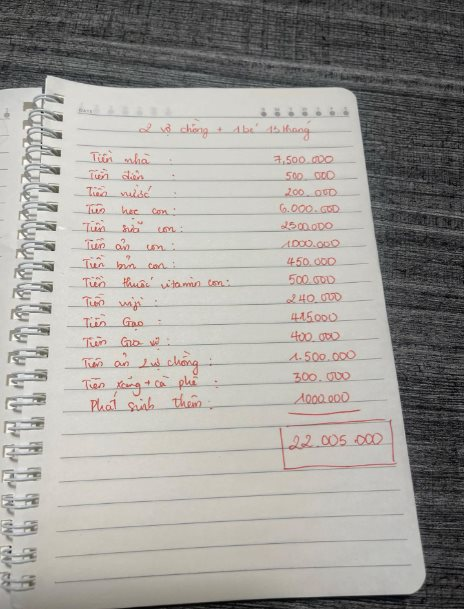 DATE
2 vợ chồng + 1 bé 15 tháng
Tiền nhà : 7,500.000
Tiền điện : 500.000
Tiền nước : 200.000
Tiền học con : 6.000.000
Tiền sữa con : 2500000
Tiền ăn con : 1.000.000
Tiền bỉm con : 450.000
Tiền thuốc vitamin con : 500.000
Tiền wifi : 240.000
Tiền Gạo : 415.000
Tiền Gia vị : 400.000
Tiền ăn 2 vợ chồng : 1.500.000
Tiền xăng + cà phê : 300.000
Phát sinh thêm : 1000.000
22.005.000